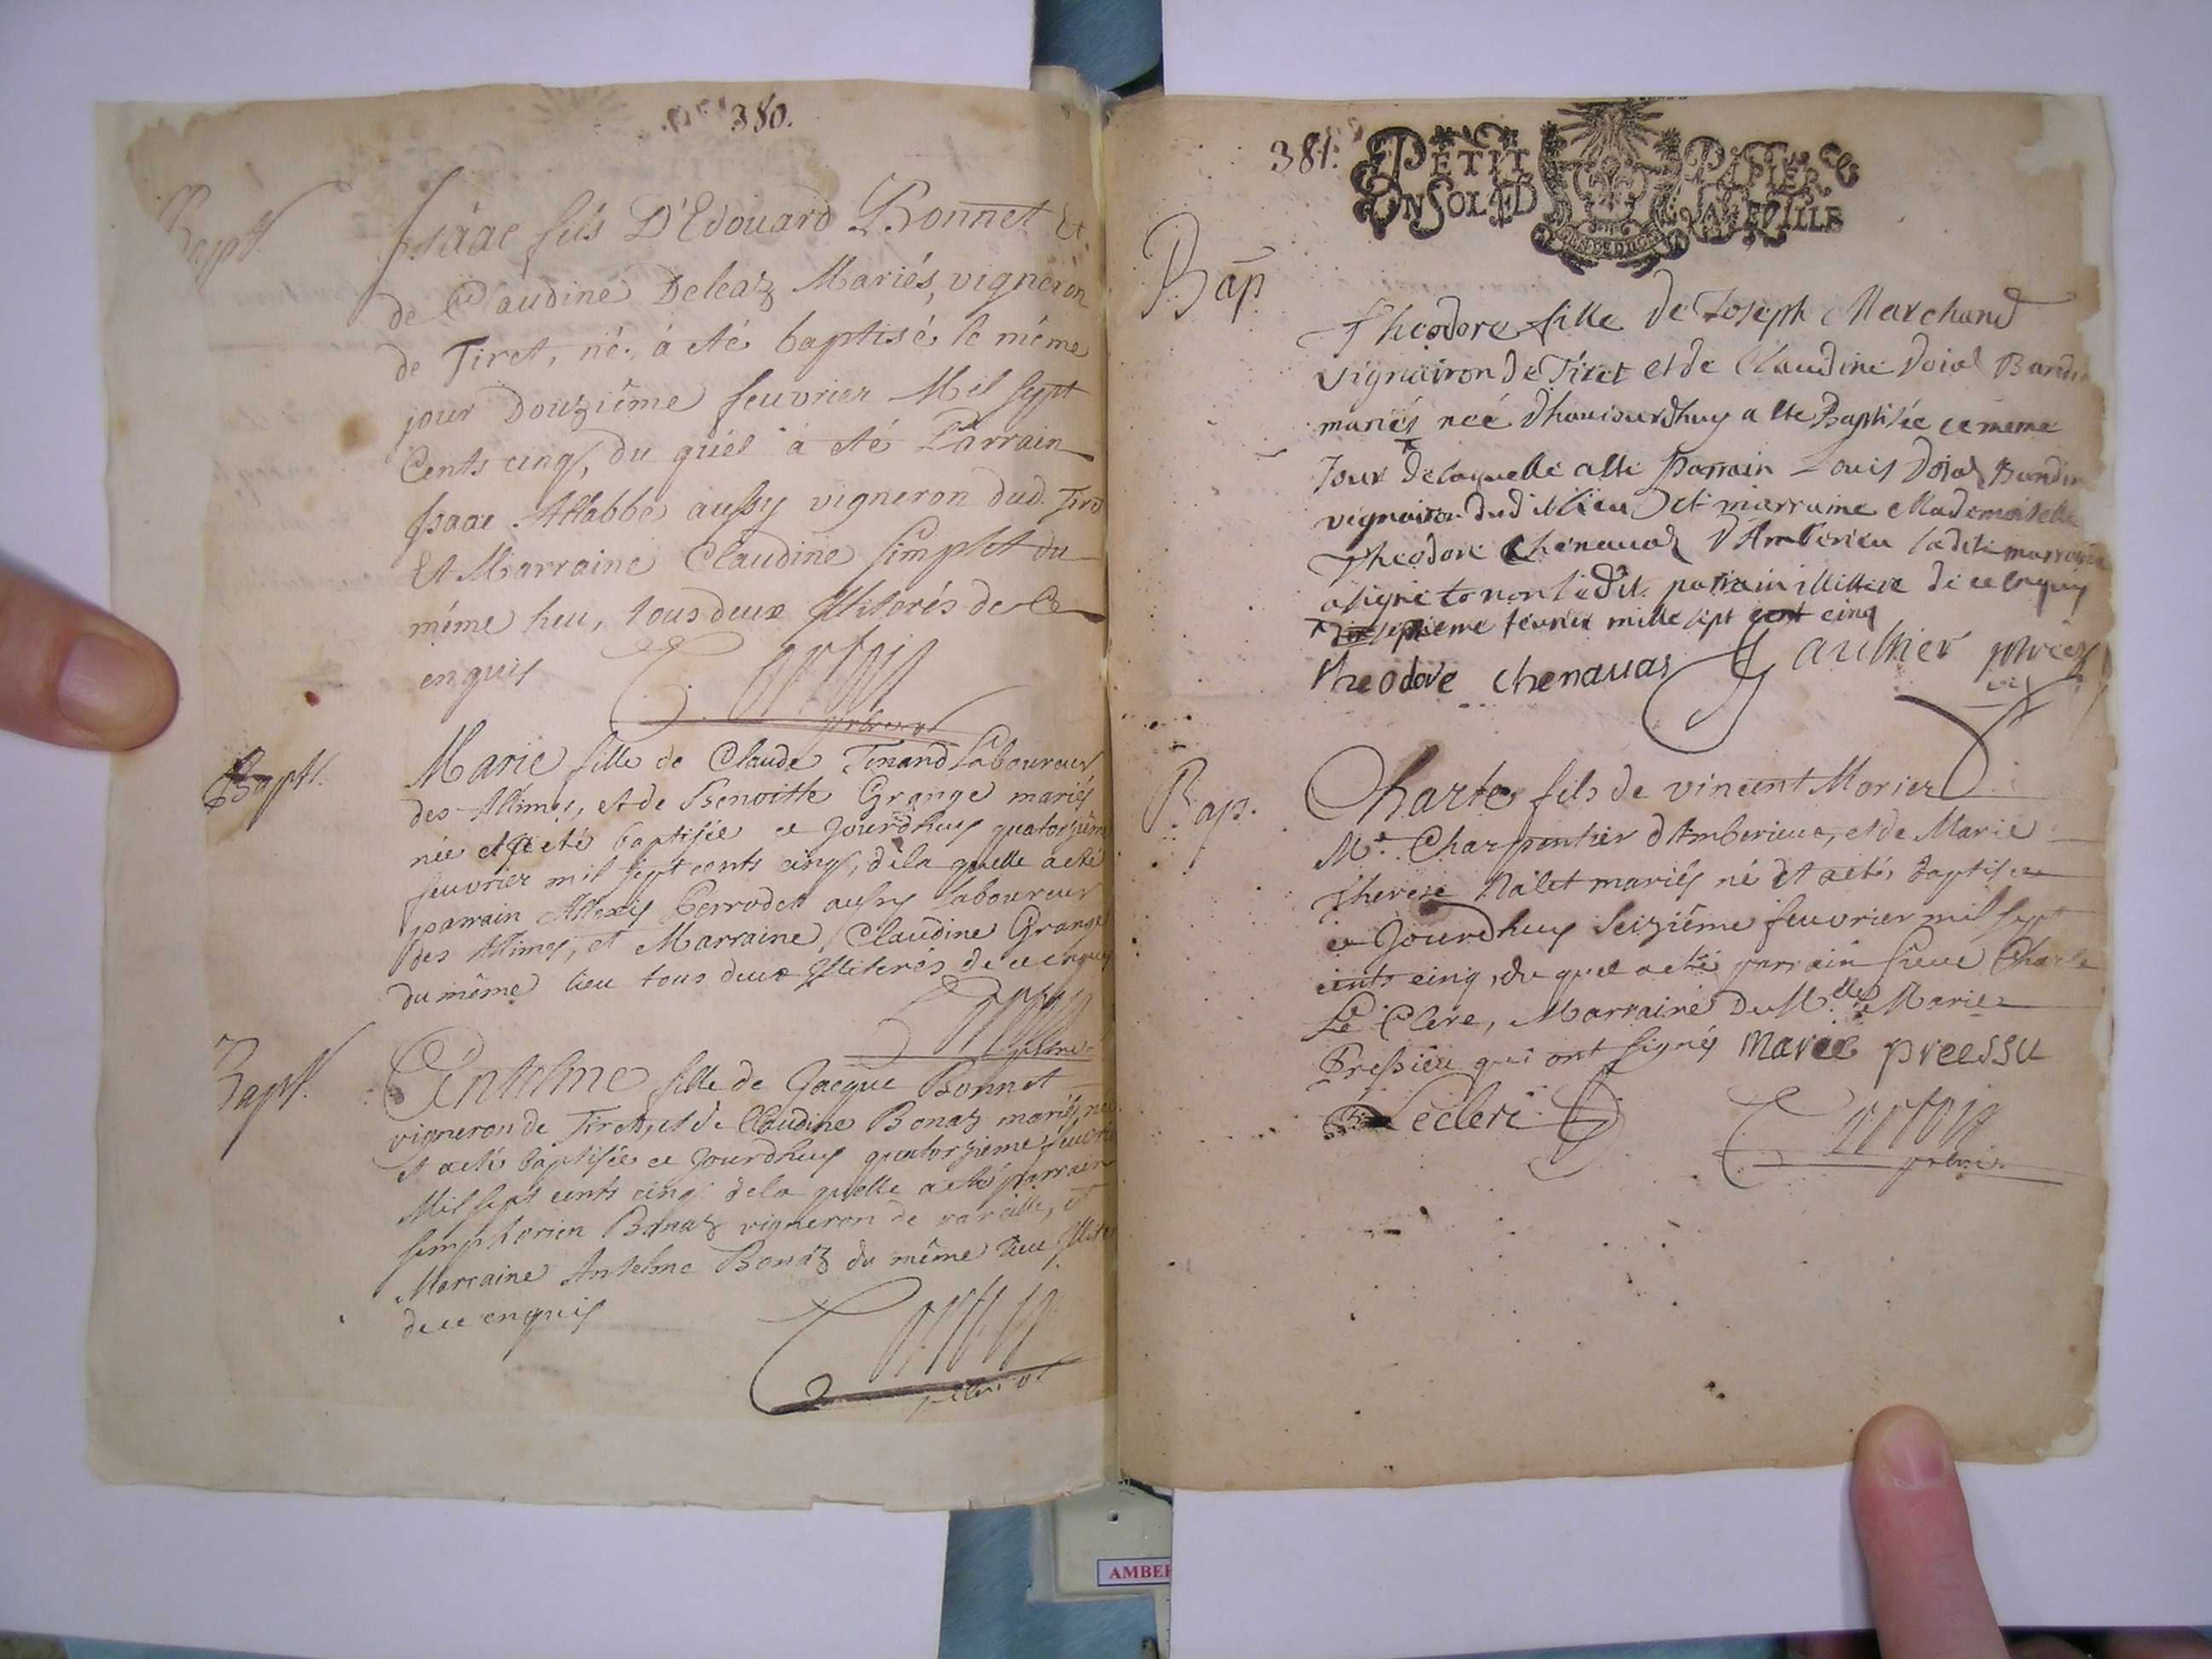 380.
Bapt.
Isáac fils D'Edouard Bonnet Et
de Claudine Deleaz Mariés, vigneron
de Tiret, né, á eté baptisé le méme
jour Douziéme feuvrier Mil sept
Cents cinq, du quel á eté Parrain
Isaac Allabbe aussy vigneron dud. Tiret
Et Marraine Claudine simplet du
méme lieu, tous deux Illiterés de Ce
enquis
Bapt.
Marie fille de Claude Tenand Laboureur
des Allimes, et de Benoitte Grange mariés
née et a eté baptisée ce Jourdhuy quatorziéme
feuvrier mil sept cents cinq, de la quelle a eté
parrain Allexis Perrodet aussy Laboureur
des Allimes, et Marraine Claudine Grange
du méme lieu tous deux Illiterés de ce enquis
Bapt.
Antelme fille de Jacque Bonnet
vigneron de Tiret, et de Claudine Bonaz mariés, née
et a eté baptisée ce Jourdhuy quatorzieme feuvrier
Mil sept cents cinq dela quelle a eté parrain
simphorien Bonaz vigneron de vareille, et
Marraine Antelme Bonaz du méme lieu Illite
de ce enquis
381.
PETIT PAPIER
UN SOL LA FEUILLE
Bap
Theodore fille de Joseph Marchand
vignairon de Tiret et de Claudine
mariés neé dhauiourdhuy a ete Baptisée ce meme
Jour de laquelle a ete parrain Louis
vignairon dudit lieu et marraine Mademoiselle
Theodore Chenauaz d'Amberieu ladite marraine
a signé et non ledit parrain illittere de ce enquis
septieme feurier mille sept cent cinq
theodore chenauas Gauthier
Bap.
Charle fils de vincent Morier
Mᵉ Charpentier d'Amberieux, et de Marie
Therese Nalet mariés né Et a eté baptisé
ce Jourdhuy Seiziéme feuvrier mil sept
cents cinq, du quel a eté parrain sieur Charle
Le Clerc, Marraine DuMˡˡᵉ Marie
Pressieu qui ont signés Marie preessu
Leclerc
AMBER